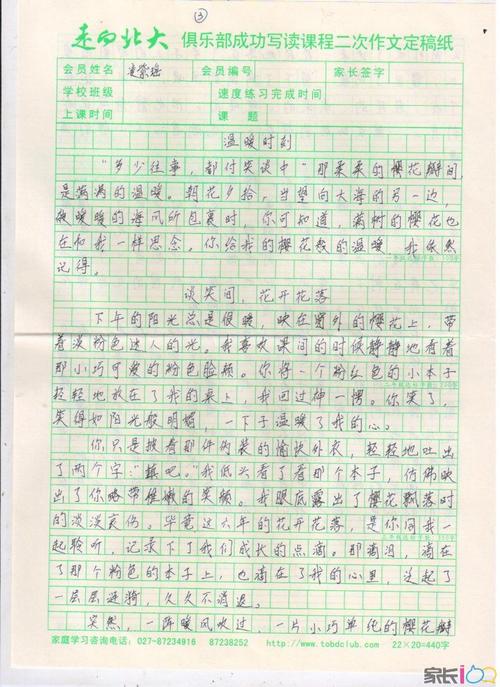 ③
走向北大 俱乐部成功写读课程二次作文定稿纸
会员姓名 会员编号 家长签字
学校班级 速度练习完成时间
上课时间 课题
温暖时刻
“多少往事，都付笑谈中”那柔柔的樱花瓣间，
是满满的温暖。朝花夕拾，当望向大海的另一边，
被暖暖的海风所包裹时，你可知道，满树的樱花也
在和我一样思念，你给我的樱花般的温暖，我依然
记得。
谈笑间，花开花落
下午的阳光总是很暖，映在窗外的樱花上，带
着淡粉色迷人的光。我喜欢课间的时候静静地看着
那小巧可爱的粉色脸颊。你将一个粉红色的小本子
轻轻地放在了我的桌上，我回过神一愣。你笑了，
笑得如阳光般明媚，一下子温暖了我的心。
你只是披着那件伪装的愉快外衣，轻轻地吐出
了两个字：“填吧。”我低头看了看那个本子，仿佛映
出了你略带稚嫩的笑颜。我眼底露出了樱花飘落时
的淡淡哀伤。毕竟这六年的花开花落，是你同我一
起聆听，记录下了我们成长的点滴。那滴泪，滴在
了那个粉色的本子上，也滴在了我的心里，泛起了
一层层涟漪，久久不消退。
突然，一阵暖风吹过，一片小巧单纯的樱花瓣
家庭学习咨询电话：027-87234916 87238252 http://www.tobdclub.com 22×20=440字
家长100